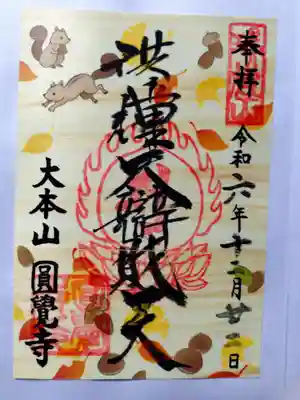 奉拝
令和六年十二月廿二日
洪鐘大辨財天
大本山
圓覺寺